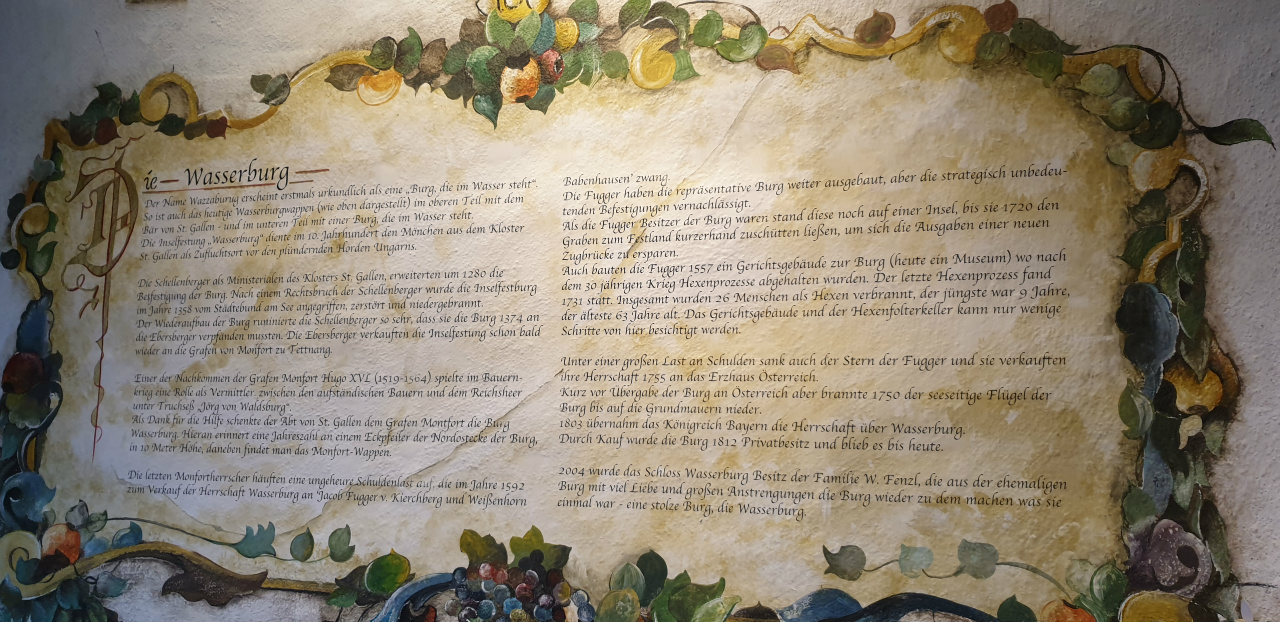 Die – Wasserburg –
Der Name Wazzaburug erscheint erstmals urkundlich als eine „Burg, die im Wasser steht“.
So ist auch das heutige Wasserburgwappen (wie oben dargestellt) im oberen Teil mit dem
Bär von St. Gallen - und im unteren Teil mit einer Burg, die im Wasser steht.
Die Inselfestung „Wasserburg“ diente im 10. Jahrhundert den Mönchen aus dem Kloster
St. Gallen als Zufluchtsort vor den plündernden Horden Ungarns.
Die Schellenberger als Ministerialen des Klosters St. Gallen, erweiterten um 1280 die
Befestigung der Burg. Nach einem Rechtsbruch der Schellenberger wurde die Inselfestburg
im Jahre 1358 vom Städtebund am See angegriffen, zerstört und niedergebrannt.
Der Wiederaufbau der Burg ruinierte die Schellenberger so sehr, dass sie die Burg 1374 an
die Ebersberger verpfänden mussten. Die Ebersberger verkauften die Inselfestung schon bald
wieder an die Grafen von Monfort zu Tettnang.
Einer der Nachkommen der Grafen Monfort Hugo XVI. (1519-1564) spielte im Bauern-
krieg eine Rolle als Vermittler, zwischen den aufständischen Bauern und dem Reichsheer
unter Truchseß „Jörg von Waldsburg“.
Als Dank für die Hilfe schenkte der Abt von St. Gallen dem Grafen Montfort die Burg
Wasserburg. Hieran erinnert eine Jahreszahl an einem Eckpfeiler der Nordostecke der Burg,
in 10 Meter Höhe, daneben findet man das Monfort-Wappen.
Die letzten Monfortherrscher häuften eine ungeheure Schuldenlast auf, die im Jahre 1592
zum Verkauf der Herrschaft Wasserburg an Jacob Fugger v. Kierchberg und Weißenhorn
Babenhausen' zwang.
Die Fugger haben die repräsentative Burg weiter ausgebaut, aber die strategisch unbedeu-
tenden Befestigungen vernachlässigt.
Als die Fugger Besitzer der Burg waren stand diese noch auf einer Insel, bis sie 1720 den
Graben zum Festland kurzerhand zuschütten ließen, um sich die Ausgaben einer neuen
Zugbrücke zu ersparen.
Auch bauten die Fugger 1557 ein Gerichtsgebäude zur Burg (heute ein Museum) wo nach
dem 30 jährigen Krieg Hexenprozesse abgehalten wurden. Der letzte Hexenprozess fand
1731 statt. Insgesamt wurden 26 Menschen als Hexen verbrannt, der jüngste war 9 Jahre,
der älteste 63 Jahre alt. Das Gerichtsgebäude und der Hexenfolterkeller kann nur wenige
Schritte von hier besichtigt werden.
Unter einer großen Last an Schulden sank auch der Stern der Fugger und sie verkauften
ihre Herrschaft 1755 an das Erzhaus Österreich.
Kurz vor Übergabe der Burg an Österreich aber brannte 1750 der seeseitige Flügel der
Burg bis auf die Grundmauern nieder.
1803 übernahm das Königreich Bayern die Herrschaft über Wasserburg.
Durch Kauf wurde die Burg 1812 Privatbesitz und blieb es bis heute.
2004 wurde das Schloss Wasserburg Besitz der Familie W. Fenzl, die aus der ehemaligen
Burg mit viel Liebe und großen Anstrengungen die Burg wieder zu dem machen was sie
einmal war - eine stolze Burg, die Wasserburg.